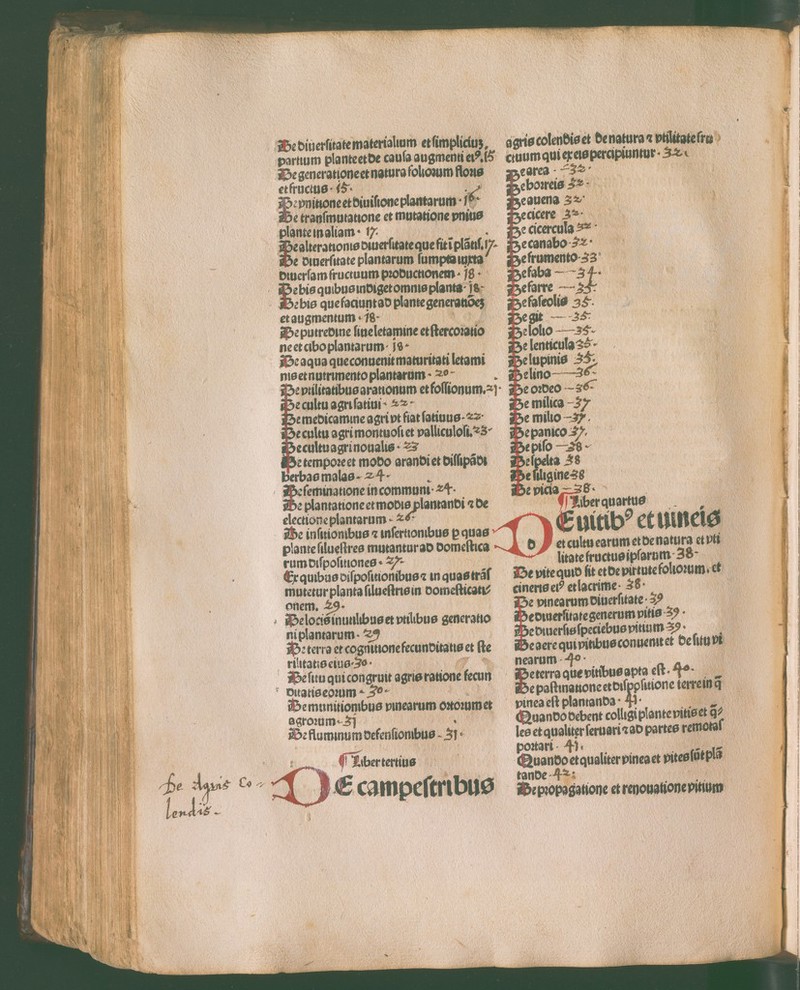 De diuersitate materialium et simpliciuꝫ
partium plante et de causa augmenti eiꝰ. 15
De generatione et natura foliorum floris
et fructus · 15 ·
De pnitione et diuisione plantarum · 16 ·
De transmutatione et mutatione pnius
plante in aliam · 17.
De alterationis diuersitate que fit ĩ plãtis. 17-
De diuersitate plantarum sumpta iuxta
diuersam fructuum productionem · 18 ·
De his quibus indiget omnis planta · 18-
De his que faciunt ad plante generatiõeꝫ
et augmentum · 18-
De putredine siue letamine et stercoratio
ne et cibo plantarum · 18 ·
De aqua que conuenit maturitati letami
nis et nutrimento plantarum · 20-
De vtilitatibus arationum et fossionum. 21 ·
De cultu agri satiui · 22-
De medicamine agri vt fiat satiuus · 22-
De cultu agri montuosi et valliculosi. 23-
De cultu agri noualis · 23
De tempore et modo arandi et dissipãdi
herbas malas · 24 ·
De seminatione in communi · 24 ·
De plantatione et modis plantandi ⁊ de
electione plantarum · 26 ·
De insitionibus ⁊ insertionibus ꝑ quas
plante siluestres mutantur ad domestica
rum dispositiones · 27-
Ex quibus dispositionibus ⁊ in quas trãs
mutetur planta siluestris in domesticati⸗
onem. 29 ·
De locis inutilibus et vtilibus generatio
ni plantarum · 29
De terra et cognitione fecunditatis et ste
rilitatis eius · 30 ·
De situ qui congruit agris ratione fecun
ditatis eorum · 30 ·
De munitionibus vinearum ortorum et
agrorum · 31
De fluminum defensionibus · 31 ·
¶ Liber tertius
DE campestribus
De Agris Co-
lendis.
agris colendis et de natura ⁊ vtilitate fru
ctuum qui ex eis percipiuntur · 32 ·
De area · 32 ·
De borreis 32 ·
De auena 32 ·
De cicere 32 ·
De cicercula 32 ·
De canabo · 32 ·
De frumento · 33 ·
De faba — 34 ·
De farre — 35 ·
De faseolis 35 ·
De git — 35 ·
De lolio — 35-
De lenticula 35-
De lupinis 35.
De lino — 36-
De ordeo — 36 ·
De milica — 37
De milio — 37 ·
De panico 37.
De piso — 38 ·
De spelta 38
De siligine 38
De vicia — 38 ·
¶ Liber quartus
DE uitibꝰ et uineis
et cultu earum et de natura et vti
litate fructus ipsarum · 38 ·
De vite quid sit et de virtute foliorum. et
cineris eiꝰ et lacrime · 38 ·
De vinearum diuersitate · 39
De diuersitate generum vitis · 39 ·
De diuersis speciebus vitium 39 ·
De aere qui vitibus conuenit et de situ vi
nearum · 40 ·
De terra que vitibus apta est. 40 ·
De pastinatione et dispositione terre in q̃
vinea est plantanda · 41 ·
Quando debent colligi plante vitis et q̃⸗
les et qualiter seruari ⁊ ad partes remotas
portari · 41 ·
Quando et qualiter vinea et vites sũt plã
tande · 42 ·
De propagatione et renouatione vitium